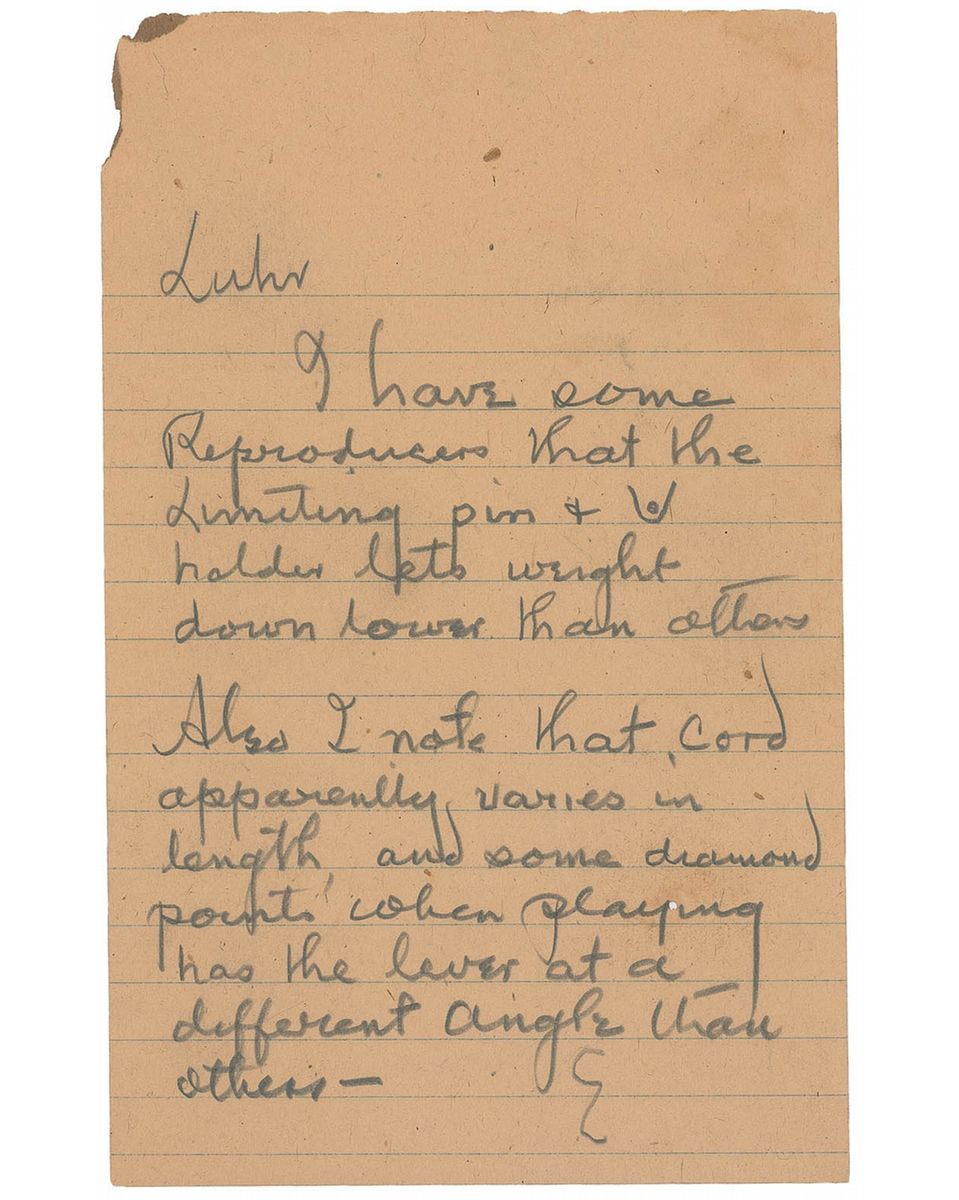 Luhr
I have some
Reproducers that the
Limiting pin &
holder lets weight
down lower than others
Also I note that cord
apparently varies in
length, and some diamond
points when playing
has the lever at a
different angle than
others —
E